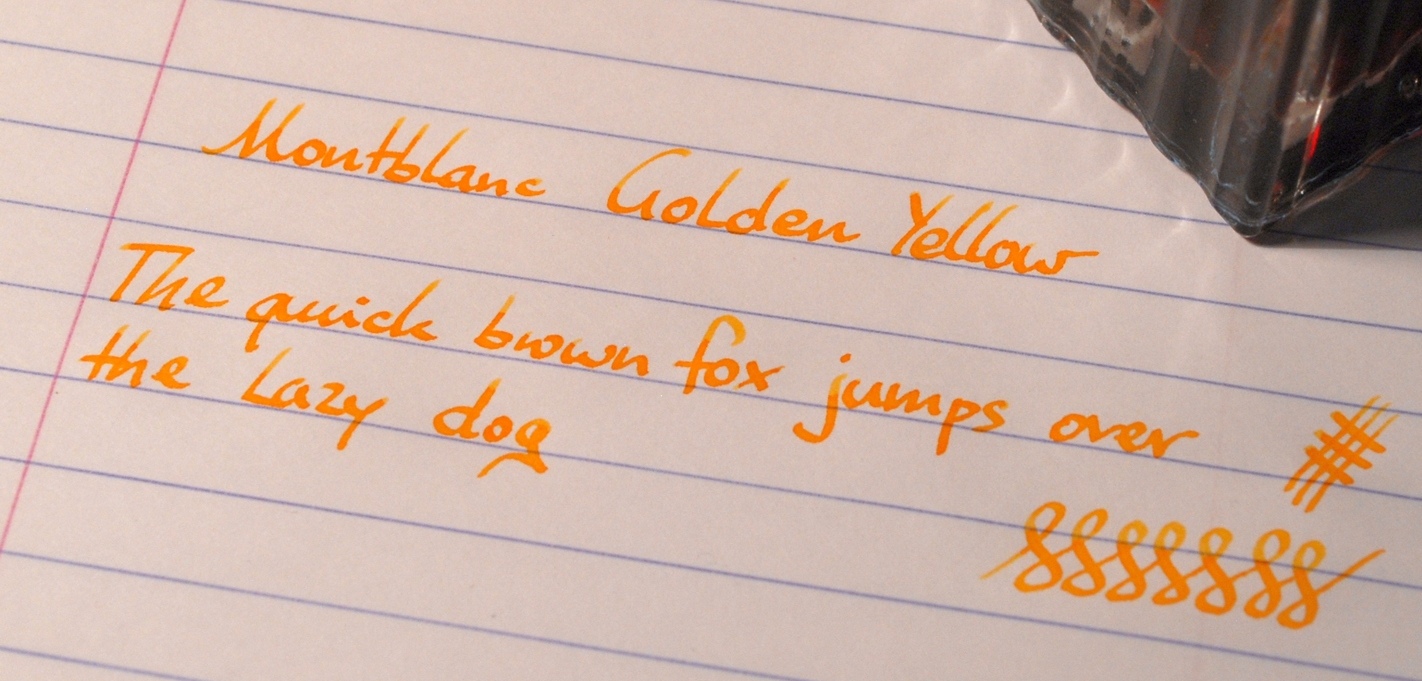 Montblanc Golden Yellow
The quick brown fox jumps over
the Lazy dog